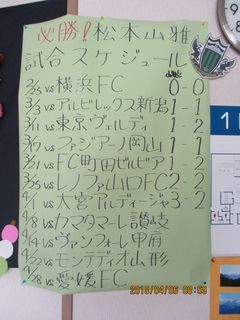 必勝!松本山雅
試合スケジュール
2/25 vs 横浜FC 0-0
3/3 vs アルビレックス新潟 1-1
3/11 vs 東京ヴェルディ 1-2
3/17 vs ファジアーノ岡山 1-1
3/21 vs FC町田ゼルビア 1-2
3/25 vs レノファ山口FC 2-2
4/1 vs 大宮アルディージャ 3-2
4/8 vs カマタマーレ讃岐
4/14 vs ヴァンフォーレ甲府
4/22 vs モンテディオ山形
4/28 vs 愛媛FC
2018/04/06